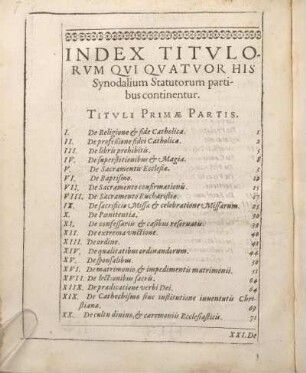 INDEX TITVLO-
RVM QVI QVATVOR HIS
Synodalium Statutorum parti-
bus continentur.
TITVLI PRIMÆ PARTIS.
I. De Religione & fide Catholica. 1
II. De professione fidei Catholica. 2
III. De libris prohibitis. 5
IV. De superstitionibus & Magia. 8
V. De Sacramentis Ecclesiæ.
VI. De Baptismo. 12
VII. De Sacramento confirmationis. 15
VIII. De Sacramento Eucharistiæ. 17
IX. De sacrificio Missæ & celebratione Missarum. 23
X. De Pœnitentia. 30
XI. De confessariis & casibus reseruatis.
XII. De extrema vnctione. 40
XIII. De ordine.
XIV. De qualitatibus ordinandorum.
XV. De sponsalibus.
XVI. De matrimonio, & impedimentis matrimonii. 51
XVII. De lectionibus sacris. 64
XIIX. De prædicatione verbi Dei. 64
XIX. De Cathechismo siue institutione iuuentutis Chri-
stianæ. 69
XX. De cultu diuino, & cæremoniis Ecclesiasticis. 71
XXI. De